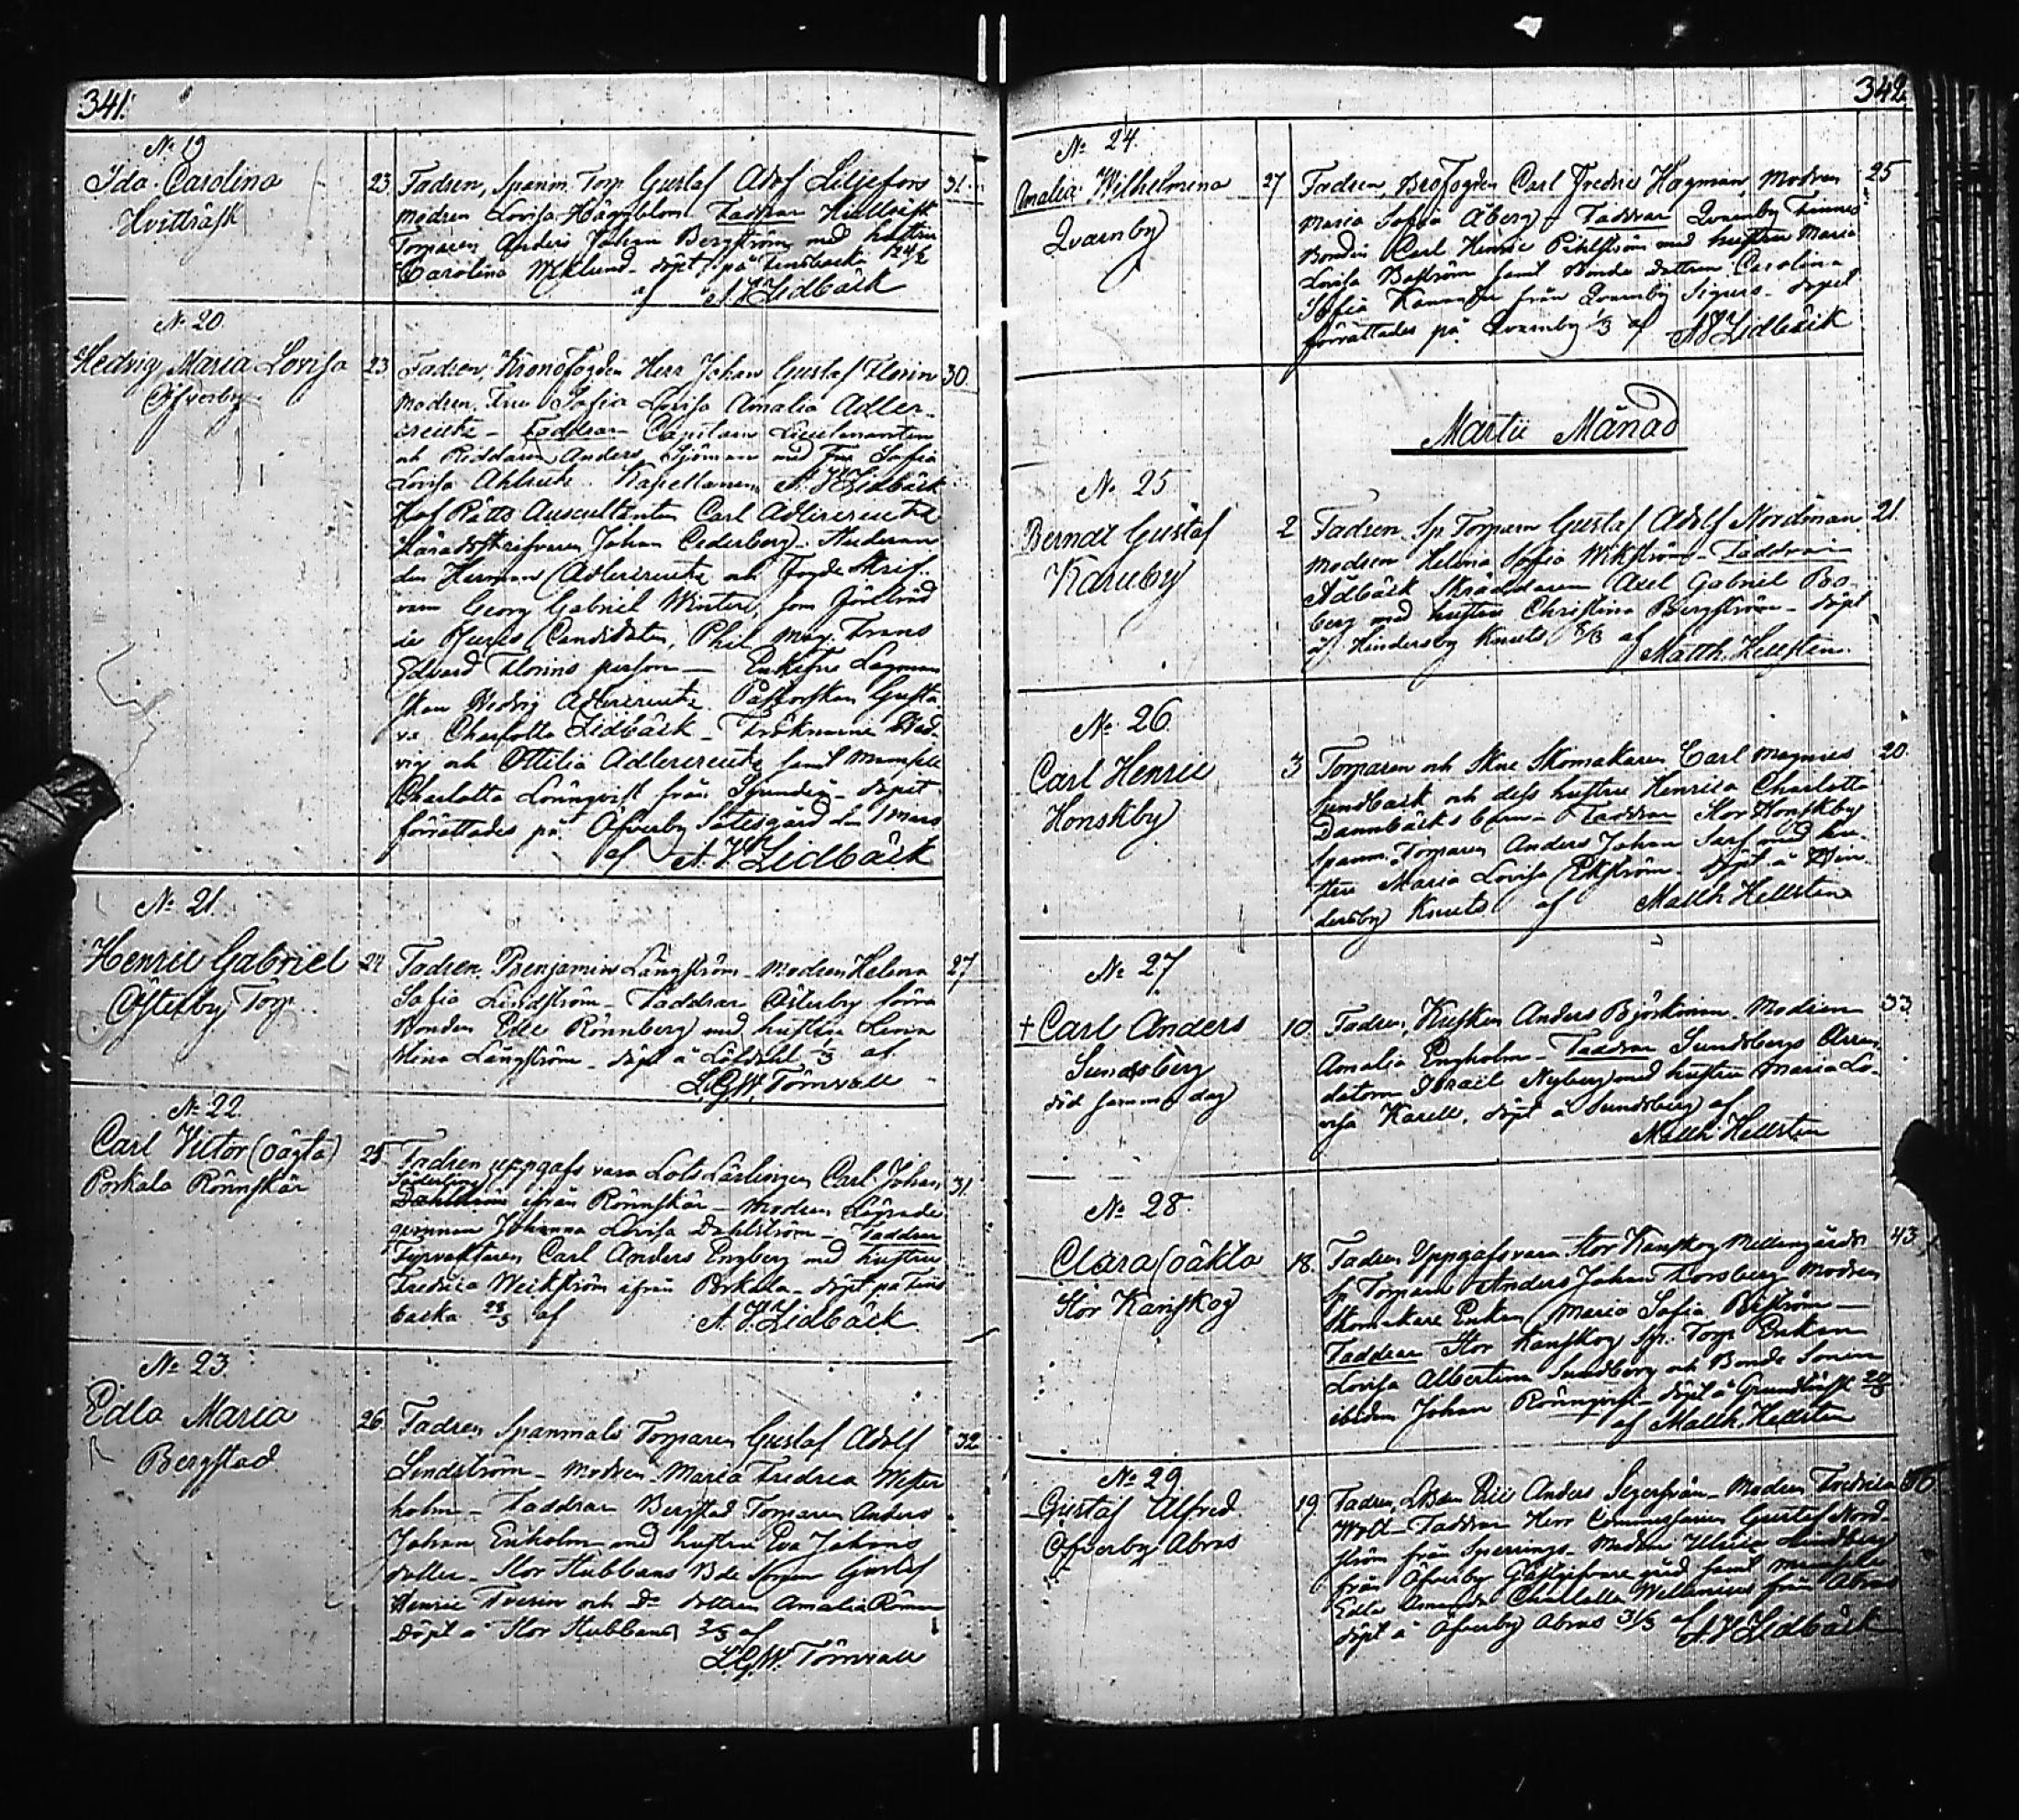 341.
No 19
Ida Carolina
Hvitträsk
23. Fadren, Spanm. Torp. Gustaf Adolf Liljefors 31.
modren Lovisa Häggblom. Faddrar Hvittrsk
Torparen Anders Johan Bergström med hustru
Carolina Wiklund - döpt på Finsbacka
af A. V. Lidbäck
No 20.
Hedvig Maria Lovisa
Öfverby
23. Fadren, Kronofogden Herr Johan Gustaf Florin 30.
Modren, Fru Sofia Lovisa Amalia Adler-
creutz - Faddrar Capitain Lieutenanten
och Riddaren Anders Sjöman med Fru Sofia
Lovisa Kapellanen A. V. Lidbäck
Hof Rätts Auscultanten Carl Adlercreutz
Häradsskrifvaren Johan Cederberg. Studeran
den Herman Adlercreutz och Fogde Skrif-
varen Georg Gabriel Winter, som förträd
de Juris Candidaten, Phil. Mag. Frans
Edvard Florins person - Enkefru Lagman
skan Hedvig Adlercreutz. Pastorskan Gusta
va Charlotta Lidbäck - Fröknarne Hed-
vig och Ottilia Adlercreutz samt Mamsell
Charlotta Lönnqvist från - döpt
förrättades på Öfverby Sätesgård den 1 Mars
af A. V. Lidbäck
No 21.
Henric Gabriel
Österby Torp
24 Fadren, Benjamin Långström - Modren Helena 27
Sofia Lindström - Faddrar Österby förra
Bonden Eric Rönnberg med hustru
Mina Långström - döpt å 1/3 af
L.G.W. Törnvall
No 22.
Carl Victor (oägta)
Porkala Rönnskär
25 Fadren uppgafs vara Lots Lärlingen Carl Johan 31.
Söderberg
Dahlström ifrån Rönnskär - Modren Lägrade
qvinnan Johanna Lovisa Dahlström - Faddrar
Fyrvaktaren Carl Anders Engberg med hustru
Fredrica Weckström ifrån Porkala - döpt på Fins
backa af A. V. Lidbäck
No 23.
Edla Maria
Bergstad
26. Fadren Spanmåls Torparen Gustaf Adolf 32
Lindström - Modren Maria Fredrica Wester
holm - Faddrar Bergstad Torparen Anders
Johan Enholm med hustru Eva Johans
dotter - Stor Hubbans Bde Sonen Gustaf
Henric Tverin och Do dottren Amalia Roman
Döpt å Stor Hubbans af
L.G.W. Törnvall
342.
No 24.
Amalia Wilhelmina
Qvarnby
27 Fadren, Brofogden Carl Fredric Hagman Modren 25
Maria Sofia Åberg - Faddrar Qvarnby Finnes
Bonden Carl Henric Pihlström med hustru Maria
Lovisa Boström samt Bonde dottren Carolina
Sofia från Qvarnby Sigurs - döpet
förrättades på Qvarnby 1/3 af A V Lidbäck
Martii Månad
No 25
Berndt Gustaf
Karuby
2 Fadren, Sp. Torparen Gustaf Adolf Nordman 21.
modren Helena Sofia Wikström - Faddrar
Ådbäck Skräddaren Axel Gabriel Bro
berg med hustru Christina Bergström - döpt
å Hindersby Knuts 8/3 af
Matth. Hellsten.
No 26.
Carl Henric
Honskby
3 Torparen och Skomakaren Carl Magnus 20.
Sundback och dess hustru Henrica Charlotta
Dannbäcks barn - Faddrar Stor Honskby
Spanm. Torparen Anders Johan Sarf med hu-
stru Maria Lovisa Ekström - Döpt å Hin
dersby Knuts af Matth Hellsten
No 27
+ Carl Anders
Sundsberg
död samma dag
10. Fadren, Kusken Anders Björkman - Modren 33.
Amalia Engholm - Faddrar Sundsbergs Arren
datorn Israel Nyberg med hustru Maria Lo-
visa Karell, döpt å Sundsberg af
Matth Hellsten
No 28.
Clara (oäkta
Stor Kanskog
18. Fadren Uppgafs vara Stor Kanskog Mellangårds 43.
Sp Torparn Anders Johan Forsberg Modren
Skomakare Enkan Maria Sofia Boström -
Faddrar Stor Kanskog Sp. Torp Enkan
Lovisa Albertina Sundberg och Bonde Sonen
ibidem Johan Rönnqvist - döpt å Grundträsk
af Matth. Hellsten
No 29
Gustaf Alfred
Öfverby Abras
19. Fadren, Eric Anders Segersvan - Modren Fredrica
Wolt - Faddrar Herr Commissarien Gustaf Nord
ström från Sperrings - Madam Ulrica Lundberg
från Öfverby Gästgifvare gård samt Mamsellen
Edla Amanda Charlotta Wellenius från Abras
döpt å Öfverby Abras 31/3 af A V Lidbäck